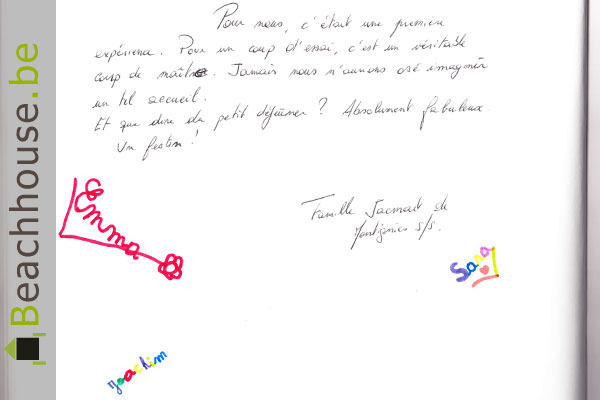 Beachhouse.be
Pour nous, c'était une première
expérience. Pour un coup d'essai, c'est un véritable
coup de maître. Jamais nous n'aurions osé imaginer
un tel accueil.
Et que dire du petit déjeuner ? Absolument fabuleux.
Un festin !
Famille Jacmart de
s/s.
Emma
Sara
Joachim